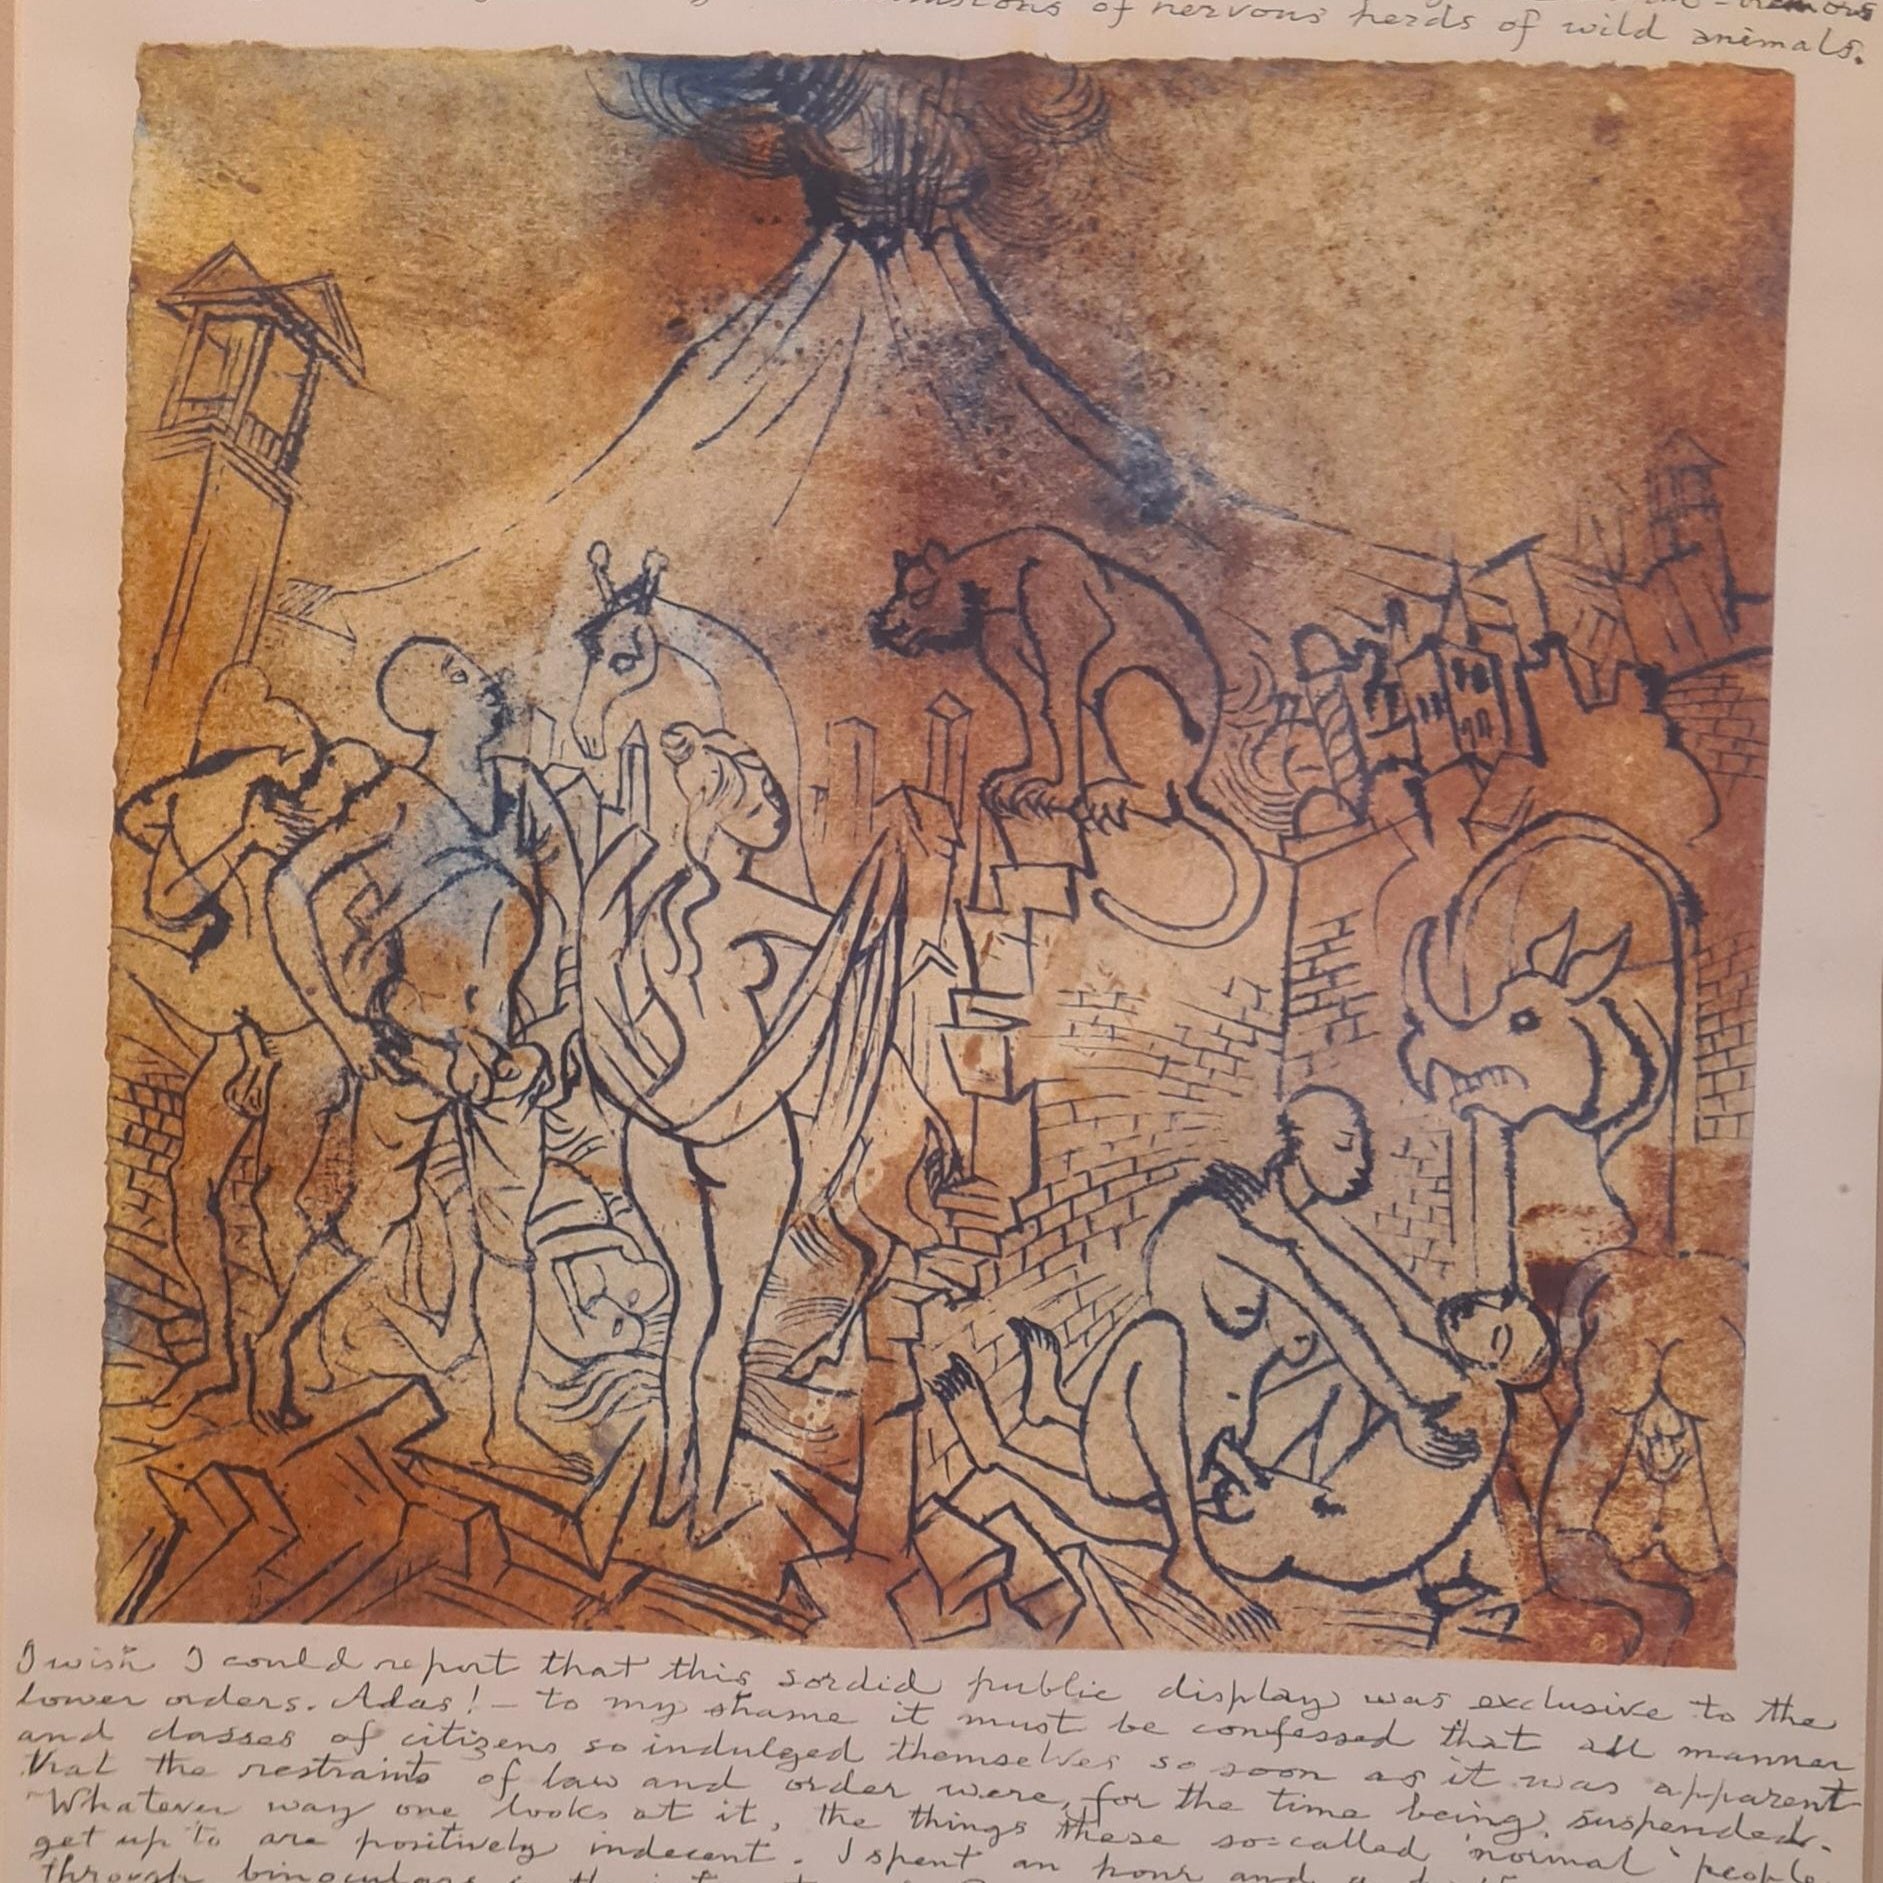 of nervous herds of wild animals.
I wish I could report that this sordid public display was exclusive to the
lower orders. Adas! - to my shame it must be confessed that all manner
and classes of citizens so indulged themselves so soon as it was apparent
that the restraints of law and order were, for the time being, suspended.
Whatever way one looks at it, the things these so-called 'normal' people
get up to are positively indecent. I spent an hour and a
through binoculars